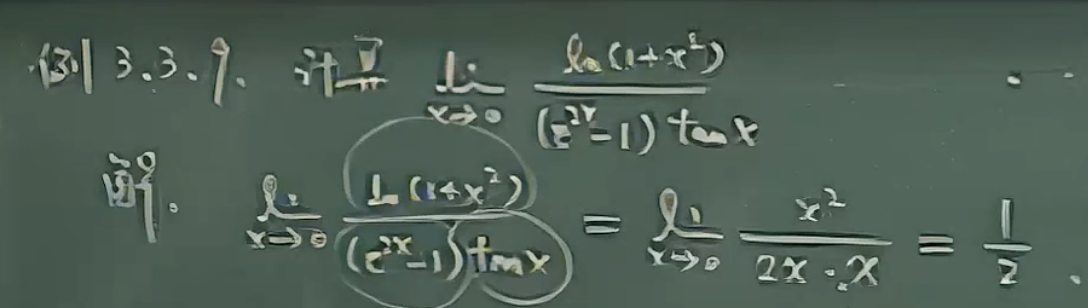 例 3.3.9. 计算 lim x→0 ln(1+x²) / (e²ˣ-1) tan x
解. lim x→0 ln(1+x²) / (e²ˣ-1) tan x = lim x→0 x² / 2x·x = 1/2.